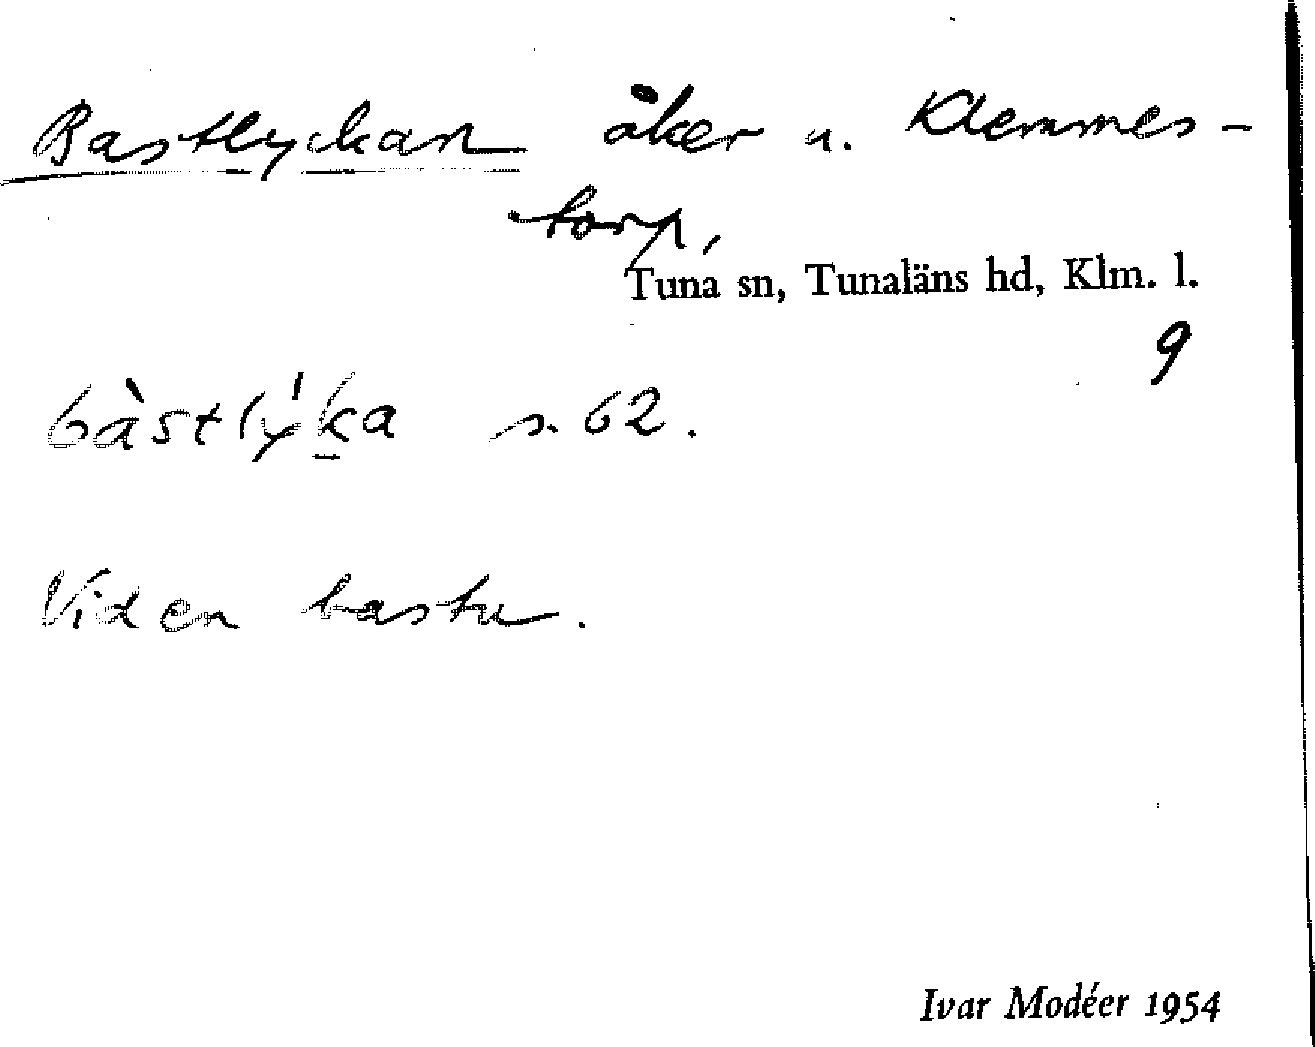 Bastlyckan åker u. Klemmes-
torp,
Tuna sn, Tunaläns hd, Klm. l.
9
bàstlý̀ka s. 62.
Vid en bastu.
Ivar Modéer 1954